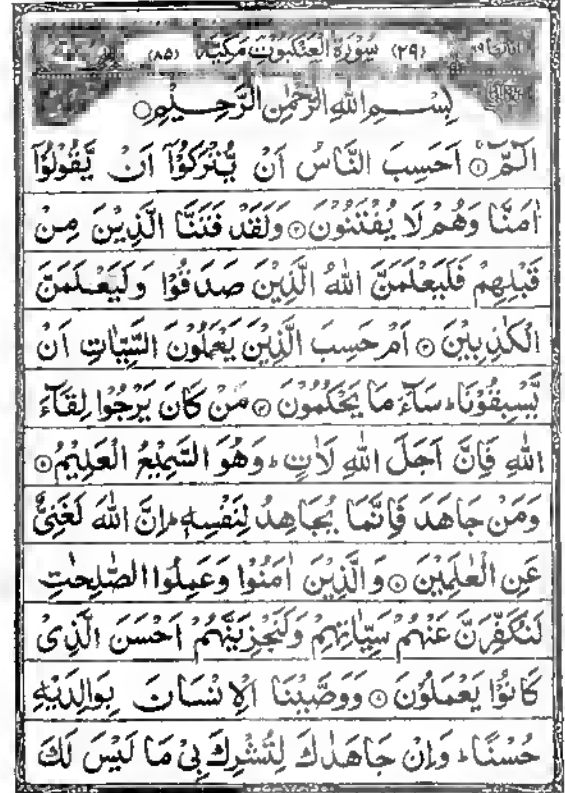 اٰیَاتُهَا ٦٩ (٢٩) سُوْرَةُ الْعَنْكَبُوْتِ مَكِّیَّةٌ (٨٥)
بِسْمِ اللّٰهِ الرَّحْمٰنِ الرَّحِیْمِ ○
الٓمّٓ ۚ﴿۱﴾ اَحَسِبَ النَّاسُ اَنْ یُّتْرَكُوْۤا اَنْ یَّقُوْلُوْۤا
اٰمَنَّا وَهُمْ لَا یُفْتَنُوْنَ ﴿۲﴾ وَلَقَدْ فَتَنَّا الَّذِیْنَ مِنْ
قَبْلِهِمْ فَلَیَعْلَمَنَّ اللّٰهُ الَّذِیْنَ صَدَقُوْا وَلَیَعْلَمَنَّ
الْكٰذِبِیْنَ ﴿۳﴾ اَمْ حَسِبَ الَّذِیْنَ یَعْمَلُوْنَ السَّیِّاٰتِ اَنْ
یَّسْبِقُوْنَا ؕ سَآءَ مَا یَحْكُمُوْنَ ﴿۴﴾ مَنْ كَانَ یَرْجُوْا لِقَآءَ
اللّٰهِ فَاِنَّ اَجَلَ اللّٰهِ لَاٰتٍ ؕ وَهُوَ السَّمِیْعُ الْعَلِیْمُ ﴿۵﴾
وَمَنْ جَاهَدَ فَاِنَّمَا یُجَاهِدُ لِنَفْسِهٖ ؕ اِنَّ اللّٰهَ لَغَنِیٌّ
عَنِ الْعٰلَمِیْنَ ﴿۶﴾ وَالَّذِیْنَ اٰمَنُوْا وَعَمِلُوا الصّٰلِحٰتِ
لَنُكَفِّرَنَّ عَنْهُمْ سَیِّاٰتِهِمْ وَلَنَجْزِیَنَّهُمْ اَحْسَنَ الَّذِیْ
كَانُوْا یَعْمَلُوْنَ ﴿۷﴾ وَوَصَّیْنَا الْاِنْسَانَ بِوَالِدَیْهِ
حُسْنًا ؕ وَاِنْ جَاهَدٰكَ لِتُشْرِكَ بِیْ مَا لَیْسَ لَكَ